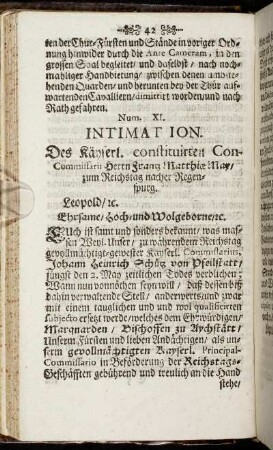 42
ten der Chur-Fürsten und Stände in voriger Ord-
nung hinwider durch die Ante Cameram, in den
grossen Saal begleitet/ und daselbst/ nach noch-
mahliger Handbietung/ zwischen denen anwese-
henden Quarden/ und herunten bey der Thür auf-
wartenden Cavalliern/ dimittirt worden/ und nach
Rath gefahren.
Num. XI.
INTIMATION.
Des Käyserl. constituirten Con-
Commissarii Herrn Frantz Matthiæ May/
zum Reichstag nacher Regen-
spurg.
Leopold/ ec.
Ehrsame/ Hoch- und Wolgeborne/ ec.
EUch ist samt und sonders bekannt, was mas-
sen Weyl. Unser/ zu währendem Reichstag
gevollmächtigt-gewester Kayserl. Commissarius,
Johann Heinrich Schütz von Pfeilstatt/
jüngst den 2. May zeitlichen Todes verblichen:
Wann nun vonnöthen seyn will/ daß dessen biß
dahin verwaltende Stell/ anderwerts/ und zwar
mit einem tauglichen und und wol qualificirten
subjecto ersetzt werde/ welches dem Ehrwürdigen/
Marquarden/ Bischoffen zu Aychstätt/
Unserm Fürsten und lieben Andächtigen/ als un-
serm gevollmächtigten Kayserl. Principal-
Commissario in Beförderung der Reichstags-
Geschäfften gebührend und treulich an die Hand
stehe/